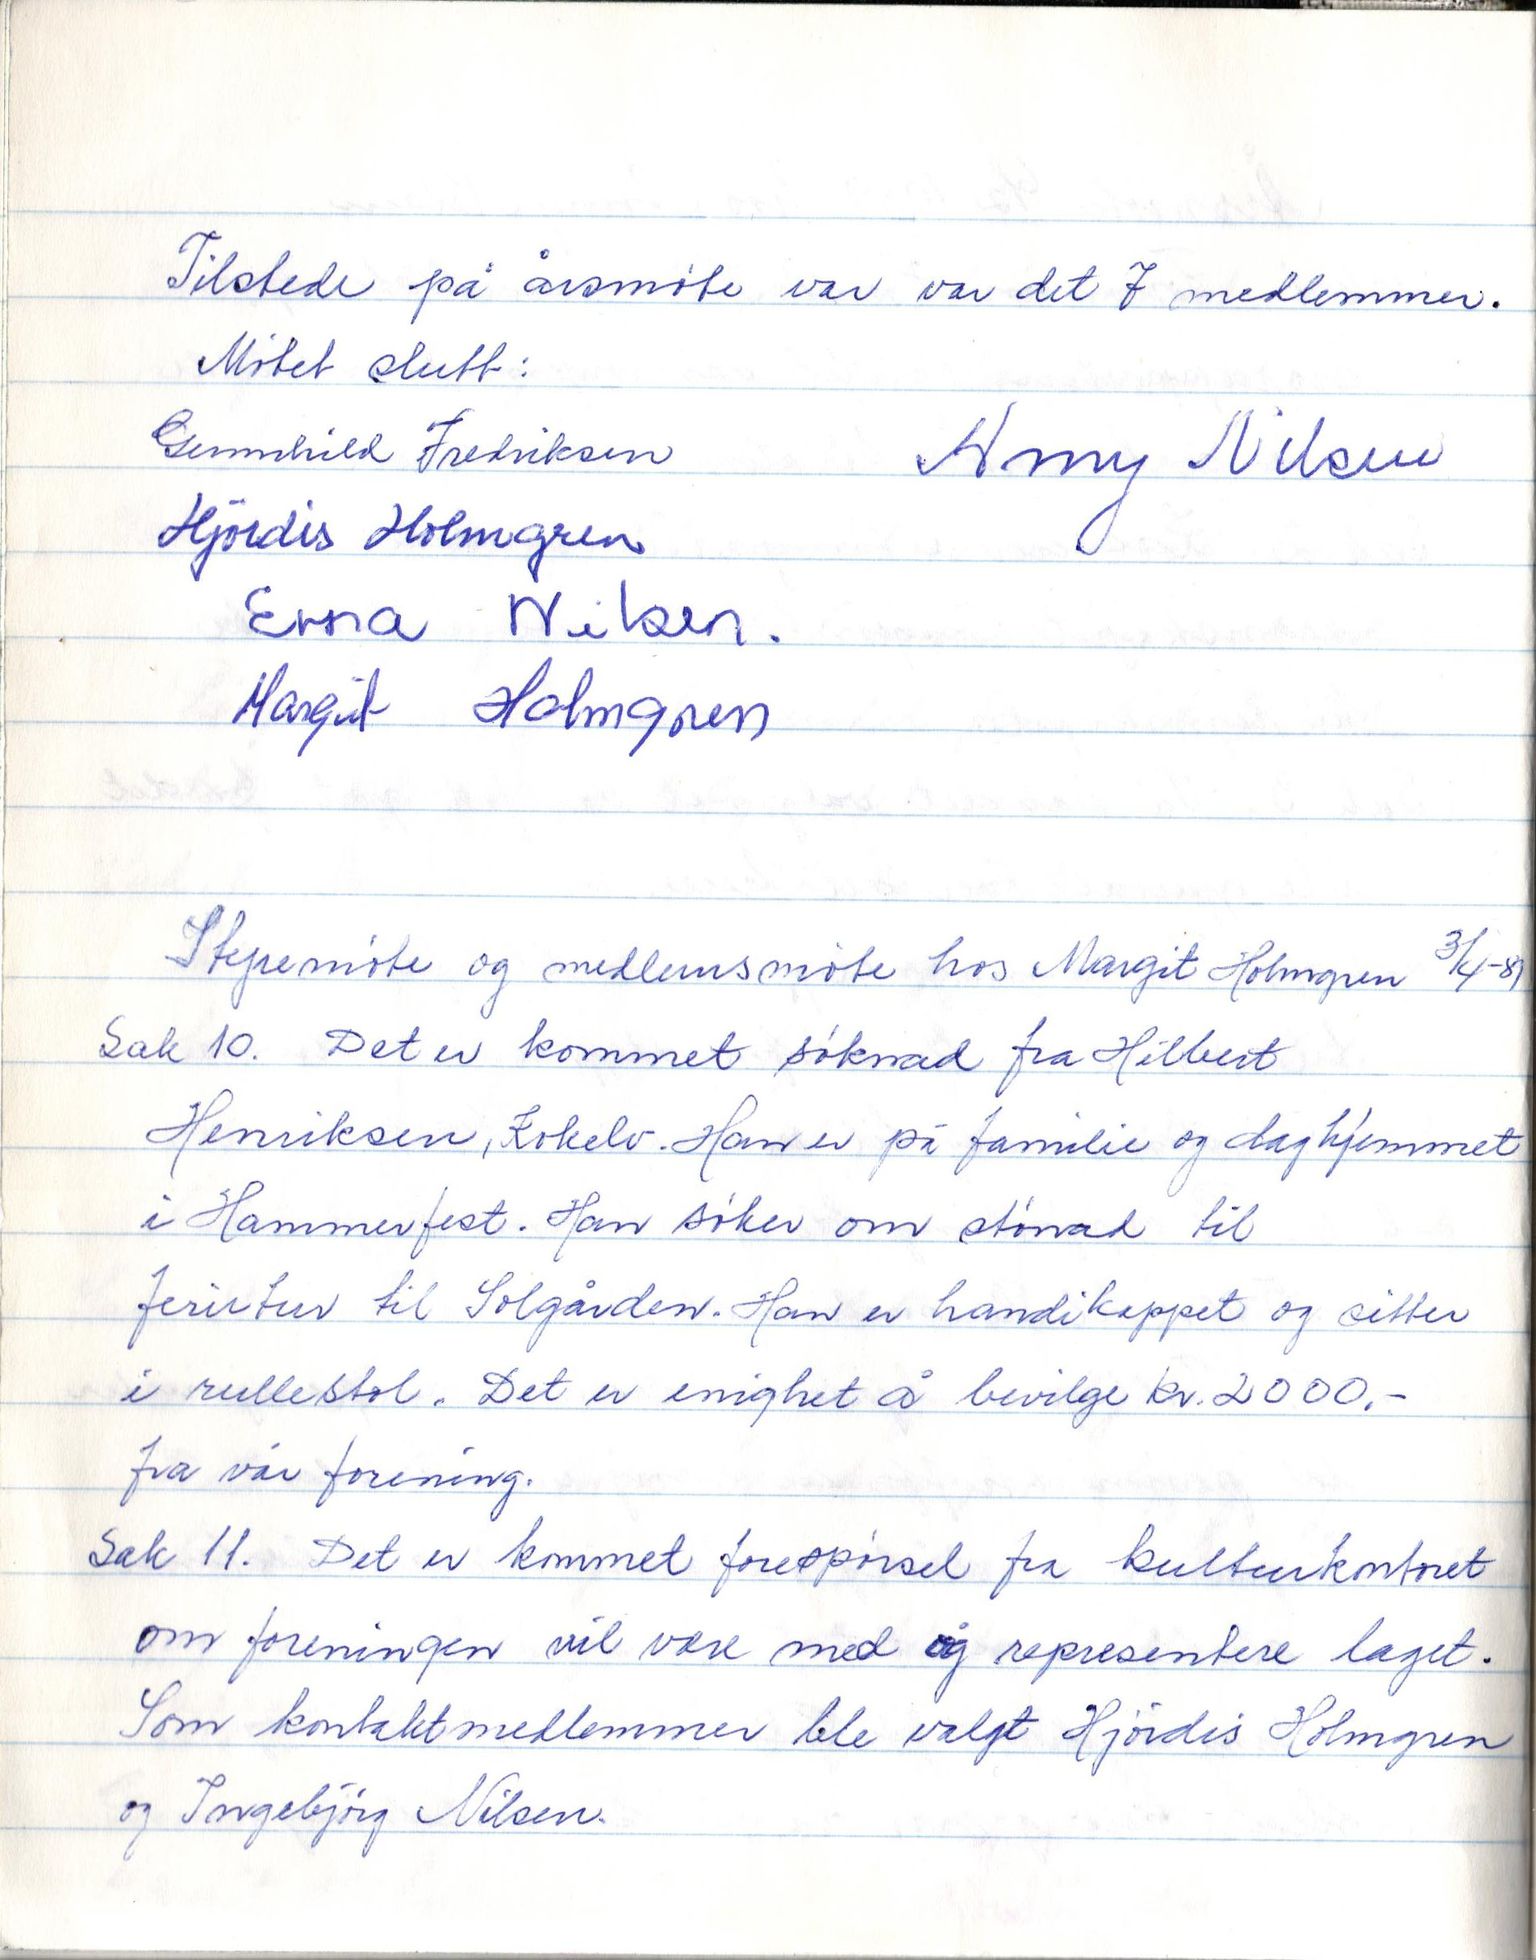 Tilstede på årsmøte var var det 7 medlemmer.
Møtet slutt:
Gunnhild Fredriksen
Anny Nilsen
Hjördis Holmgren
Erna Nilsen.
Margit Holmgren
Styremöte og medlemsmöte hos Margit Holmgren 3/4-89
Sak 10. Det er kommet søknad fra Hilbert
Henriksen, Kokelv. Han er på familie og daghjemmet
i Hammerfest. Han søker om stønad til
ferietur til Solgården. Han er handikappet og sitter
i rullestol. Det er enighet å bevilge kr. 2000.-
fra vår forening.
Sak 11. Det er kommet forespørsel fra kulturkontoret
om foreningen vil være med og representere laget.
Som kontaktmedlemmer ble valgt Hjördis Holmgren
og Ingebjörg Nilsen.